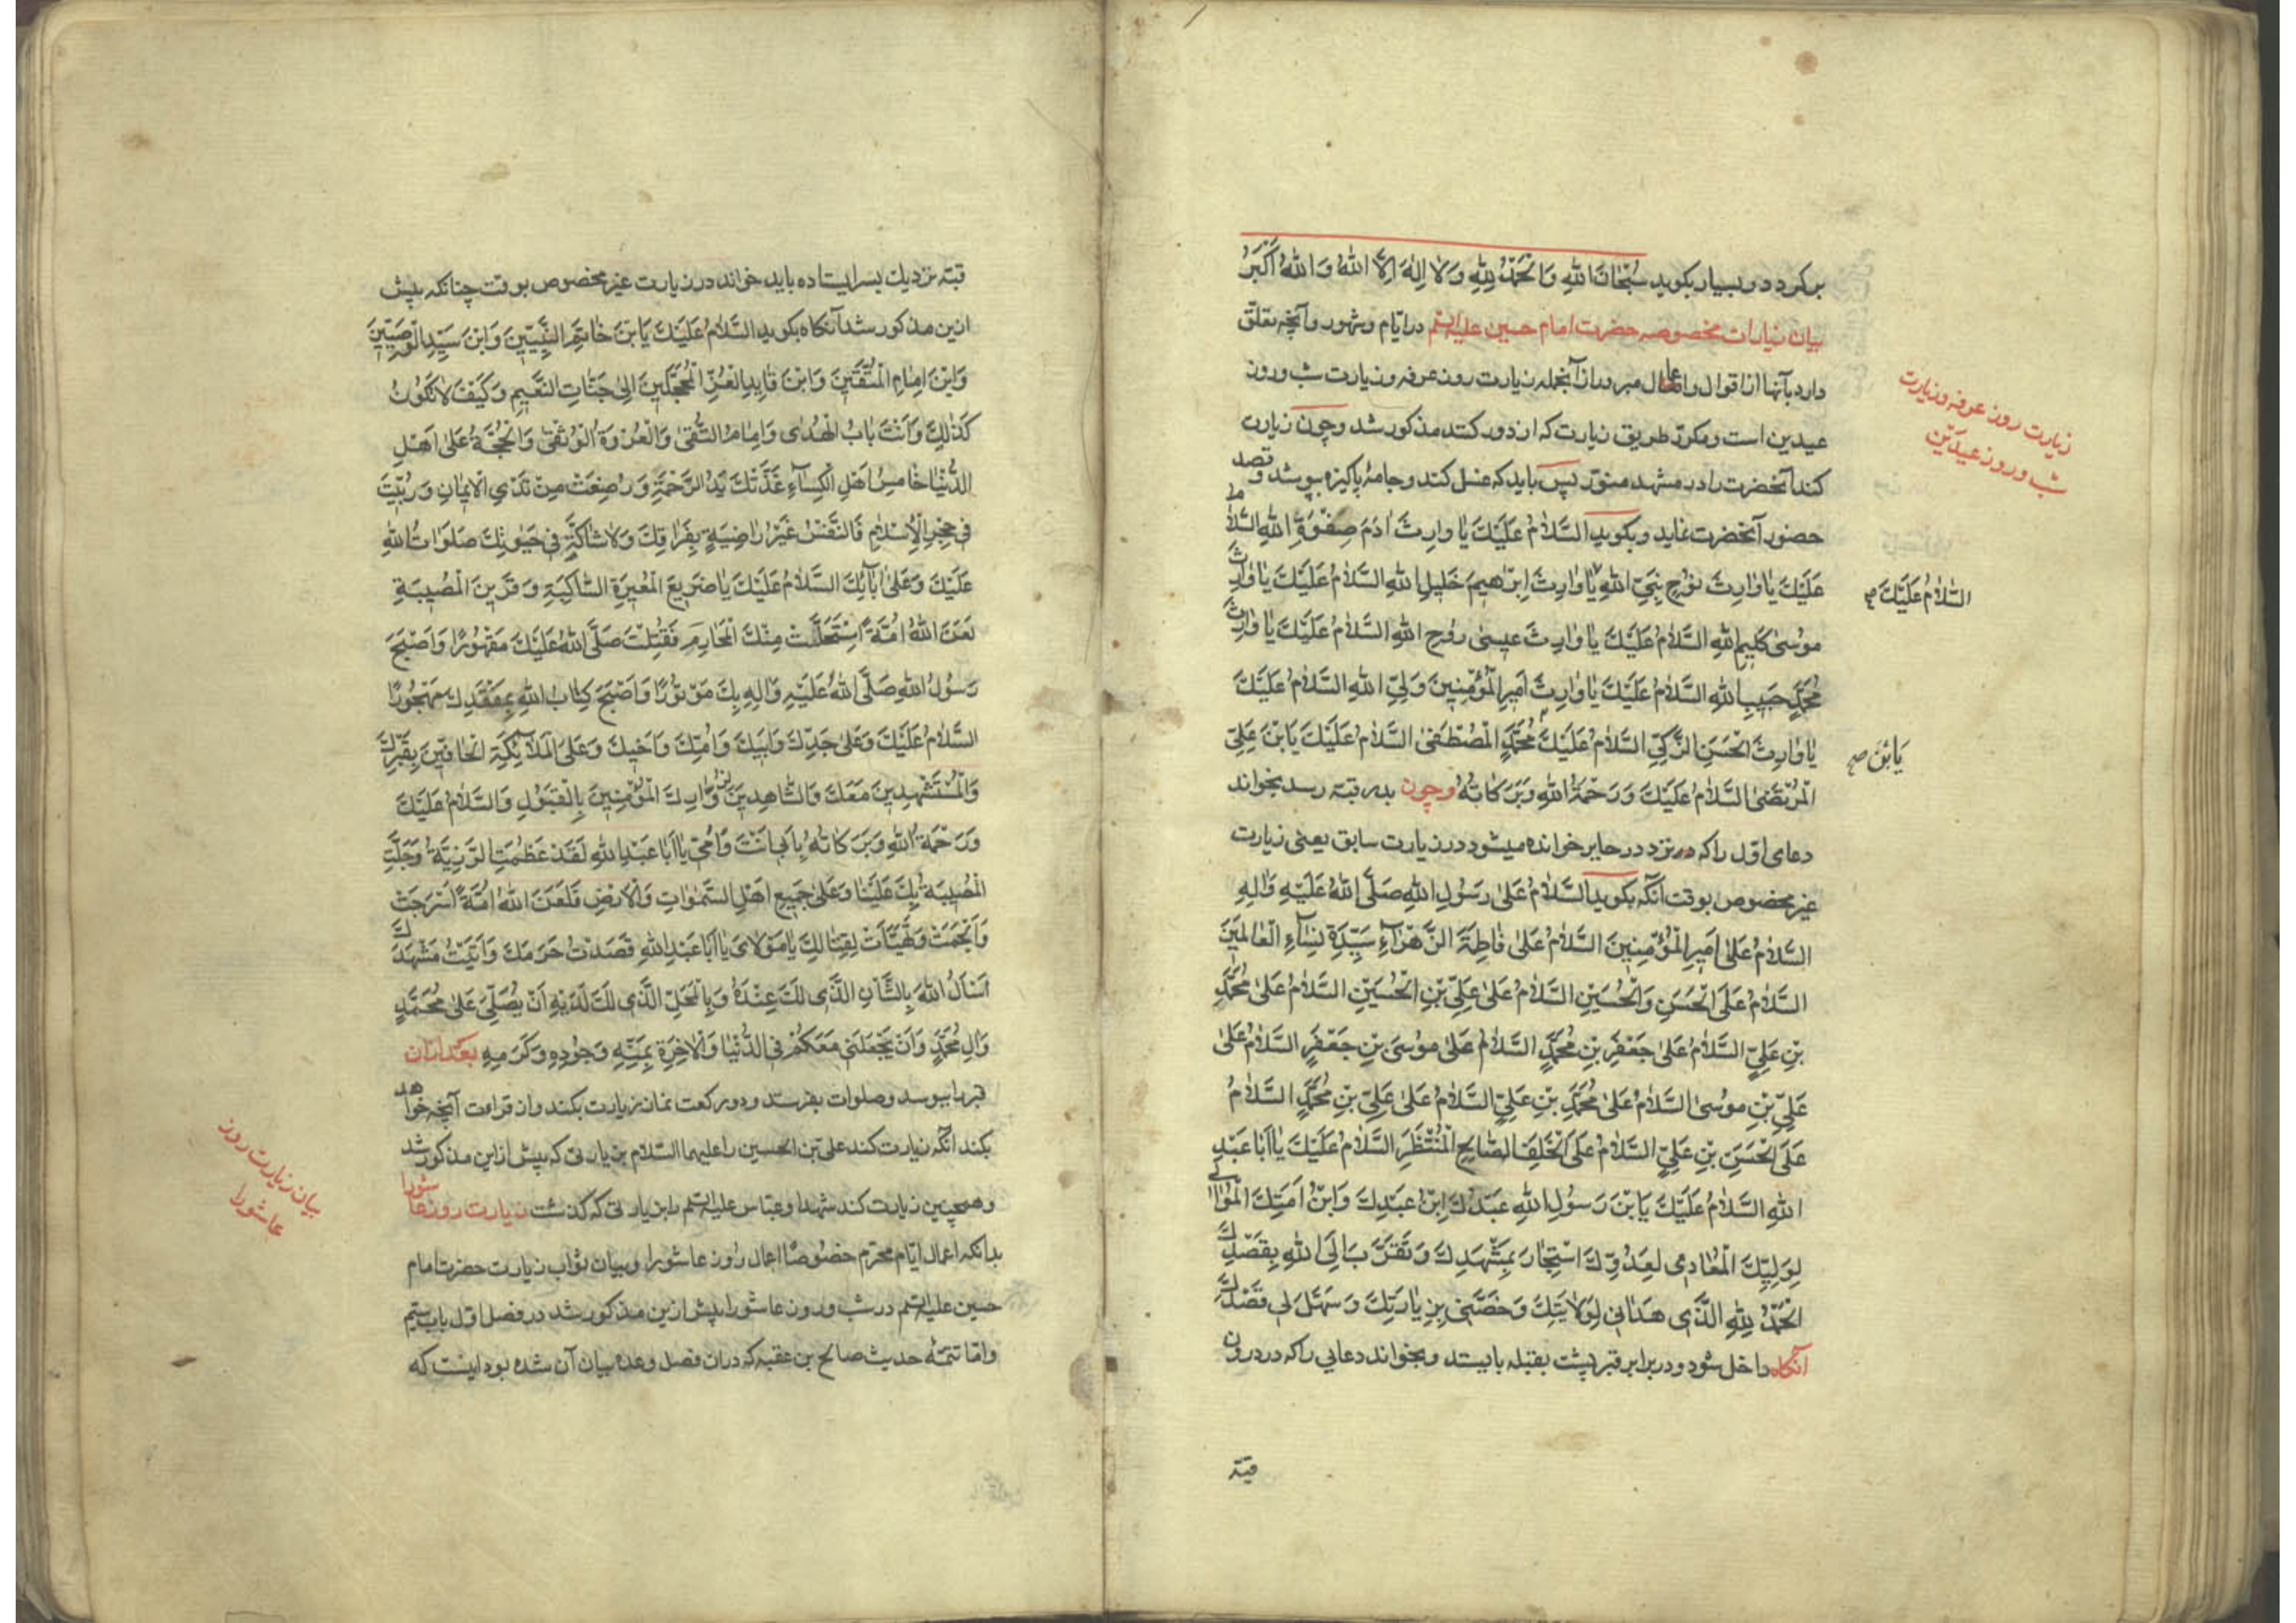 برکردد و بسیار بکوید سُبْحَانَ اللهِ وَالْحَمْدُ لِلّٰهِ وَلَا اِلٰهَ اِلَّا اللهُ وَاللهُ اَکْبَرُ
بیان زیارات مخصوصه حضرت امام حسین علیه السّلم در ایّام و شهور و آنچه تعلّق
دارد بآنها از اقوال و اعمال میرود از آنجمله زیارت روز عرفه و زیارت شب و روز
عیدین است و مکرّر طریق زیارت که از دور کنند مذکور شد و چون زیارت
کند آنحضرت را در مشهد منوّر پس باید که غسل کند و جامهٔ پاکیزه بپوشد و قصد
حضور آنحضرت نماید و بکوید السَّلَامُ عَلَیْكَ یَا وَارِثَ اٰدَمَ صِفْوَةِ اللهِ السَّلَامُ
عَلَیْكَ یَا وَارِثَ نُوْحٍ نَبِیِّ اللهِ یَا وَارِثَ اِبْرٰهِیمَ خَلِیلِ اللهِ السَّلَامُ عَلَیْكَ یَا وَارِثَ
مُوسٰی کَلِیمِ اللهِ السَّلَامُ عَلَیْكَ یَا وَارِثَ عِیسٰی رُوحِ اللهِ السَّلَامُ عَلَیْكَ یَا وَارِثَ
مُحَمَّدٍ حَبِیبِ اللهِ السَّلَامُ عَلَیْكَ یَا وَارِثَ اَمِیرِ الْمُؤْمِنِینَ وَلِیِّ اللهِ السَّلَامُ عَلَیْكَ
یَا وَارِثَ الْحَسَنِ الزَّکِیِّ السَّلَامُ عَلَیْكَ مُحَمَّدٍ الْمُصْطَفٰی السَّلَامُ عَلَیْكَ یَابْنَ عَلِیٍّ
الْمُرْتَضٰی السَّلَامُ عَلَیْكَ وَرَحْمَةُ اللهِ وَبَرَکَاتُهُ وچون بدر قبّه رسد بخواند
دعای اوّل را که در نزد در حایر خوانده میشود در زیارت سابق یعنی زیارت
غیر مخصوص بوقت آنکه بکوید السَّلَامُ عَلٰی رَسُولِ اللهِ صَلَّی اللهُ عَلَیْهِ وَاٰلِهِ
السَّلَامُ عَلٰی اَمِیرِ الْمُؤْمِنِینَ السَّلَامُ عَلٰی فَاطِمَةَ الزَّهْرَآءِ سَیِّدَةِ نِسَآءِ الْعَالَمِینَ
السَّلَامُ عَلَی الْحَسَنِ وَالْحُسَیْنِ السَّلَامُ عَلٰی عَلِیِّ بْنِ الْحُسَیْنِ السَّلَامُ عَلٰی مُحَمَّدِ
بْنِ عَلِیٍّ السَّلَامُ عَلٰی جَعْفَرِ بْنِ مُحَمَّدٍ السَّلَامُ عَلٰی مُوسَی بْنِ جَعْفَرٍ السَّلَامُ عَلٰی
عَلِیِّ بْنِ مُوسٰی السَّلَامُ عَلٰی مُحَمَّدِ بْنِ عَلِیٍّ السَّلَامُ عَلٰی عَلِیِّ بْنِ مُحَمَّدٍ السَّلَامُ
عَلَی الْحَسَنِ بْنِ عَلِیٍّ السَّلَامُ عَلَی الْخَلَفِ الصَّالِحِ الْمُنْتَظَرِ السَّلَامُ عَلَیْكَ یَا اَبَا عَبْدِ
اللهِ السَّلَامُ عَلَیْكَ یَابْنَ رَسُولِ اللهِ عَبْدُكَ ابْنُ عَبْدِكَ وَابْنُ اَمَتِكَ الْمُوَالِی
لِوَلِیِّكَ الْمُعَادِی لِعَدُوِّكَ اسْتَجَارَ بِمَشْهَدِكَ وَتَقَرَّبَ اِلَی اللهِ بِقَصْدِكَ
اَلْحَمْدُ لِلّٰهِ الَّذِی هَدَانِی لِوَلَایَتِكَ وَخَصَّنِی بِزِیَارَتِكَ وَسَهَّلَ لِی قَصْدَكَ
آنکاه داخل شود و در برابر قبر پشت بقبله بایستد و بخواند دعایی را که در درون
قبّه
زیارت روز عرفه و زیارت
شب و روز عیدَیْن
السَّلَامُ عَلَیْكَ صح
یَابْنَ صح
قبّه نزدیك بسر ایستاده باید خواند در زیارت غیر مخصوص بوقت چنانکه پیش
ازین مذکور شد آنکاه بکوید السَّلَامُ عَلَیْكَ یَابْنَ خَاتَمِ النَّبِیِّینَ وَابْنَ سَیِّدِ الْوَصِیِّینَ
وَابْنَ اِمَامِ الْمُتَّقِینَ وَابْنَ قَایِدِ الْغُرِّ الْمُحَجَّلِینَ اِلٰی جَنَّاتِ النَّعِیمِ وَکَیْفَ لَا تَکُونُ
کَذٰلِكَ وَاَنْتَ بَابُ الْهُدٰی وَاِمَامُ التُّقٰی وَالْعُرْوَةُ الْوُثْقٰی وَالْحُجَّةُ عَلٰی اَهْلِ
الدُّنْیَا خَامِسُ اَهْلِ الْکِسَآءِ غَذَّتْكَ یَدُ الرَّحْمَةِ وَرُضِعْتَ مِنْ ثَدْیِ الْاِیمَانِ وَرُبِّیتَ
فِی حِجْرِ الْاِسْلَامِ فَالنَّفْسُ غَیْرُ رَاضِیَةٍ بِفِرَاقِكَ وَلَا شَاکَّةٍ فِی حَیٰوتِكَ صَلَوَاتُ اللهِ
عَلَیْكَ وَعَلٰی اٰبَآئِكَ السَّلَامُ عَلَیْكَ یَا صَرِیعَ الْعَبْرَةِ السَّاکِبَةِ وَقَرِینَ الْمُصِیبَةِ
لَعَنَ اللهُ اُمَّةً اسْتَحَلَّتْ مِنْكَ الْمَحَارِمَ فَقُتِلْتَ صَلَّی اللهُ عَلَیْكَ مَقْهُورًا وَاَصْبَحَ
رَسُولُ اللهِ صَلَّی اللهُ عَلَیْهِ وَاٰلِهِ بِكَ مَوْتُورًا وَاَصْبَحَ کِتَابُ اللهِ بِفَقْدِكَ مَهْجُورًا
السَّلَامُ عَلَیْكَ وَعَلٰی جَدِّكَ وَاَبِیكَ وَاُمِّكَ وَاَخِیكَ وَعَلَی الْمَلَآئِکَةِ الْحَافِّینَ بِقَبْرِكَ
وَالْمُسْتَشْهِدِینَ مَعَكَ وَالشَّاهِدِینَ زُوَّارِكَ الْمُؤْمِنِینَ بِالْقَبُولِ وَالسَّلَامُ عَلَیْكَ
وَرَحْمَةُ اللهِ وَبَرَکَاتُهُ بِاَبِی اَنْتَ وَاُمِّی یَا اَبَا عَبْدِ اللهِ لَقَدْ عَظُمَتِ الرَّزِیَّةُ وَجَلَّتِ
الْمُصِیبَةُ بِكَ عَلَیْنَا وَعَلٰی جَمِیعِ اَهْلِ السَّمٰوَاتِ وَالْاَرْضِ فَلَعَنَ اللهُ اُمَّةً اَسْرَجَتْ
وَاَلْجَمَتْ وَتَهَیَّاَتْ لِقِتَالِكَ یَا مَوْلَایَ یَا اَبَا عَبْدِ اللهِ قَصَدْتُ حَرَمَكَ وَاَتَیْتُ مَشْهَدَكَ
اَسْاَلُ اللهَ بِالشَّاْنِ الَّذِی لَكَ عِنْدَهُ وَبِالْمَحَلِّ الَّذِی لَكَ لَدَیْهِ اَنْ یُصَلِّیَ عَلٰی مُحَمَّدٍ
وَاٰلِ مُحَمَّدٍ وَاَنْ یَجْعَلَنِی مَعَکُمْ فِی الدُّنْیَا وَالْاٰخِرَةِ بِمَنِّهِ وَجُودِهِ وَکَرَمِهِ بعد از آن
قبر را ببوسد و صلوات بفرستد و دو رکعت نماز زیارت بکند و از قراءت آنچه خواهد
بکند آنکه زیارت کند علیّ بن الحسین را علیهما السّلام بزیارتی که پیش ازاین مذکور شد
وهمچنین زیارت کند شهدا و عبّاس علیه السّلم را بزیارتی که کذشت زیارت روز عاشورا
بدانکه اعمال ایّام محرّم خصُوصًا اعمال روز عاشورا و بیان ثواب زیارت حضرت امام
حسین علیه السّلم در شب و روز عاشورا پیش ازین مذکور شد در فصل اوّل باب ستیم
وامّا تتمّهٔ حدیث صالح بن عقبه که دران فصل وعدهٔ بیان آن شده بود اینست که
بیان زیارت روز
عاشورا